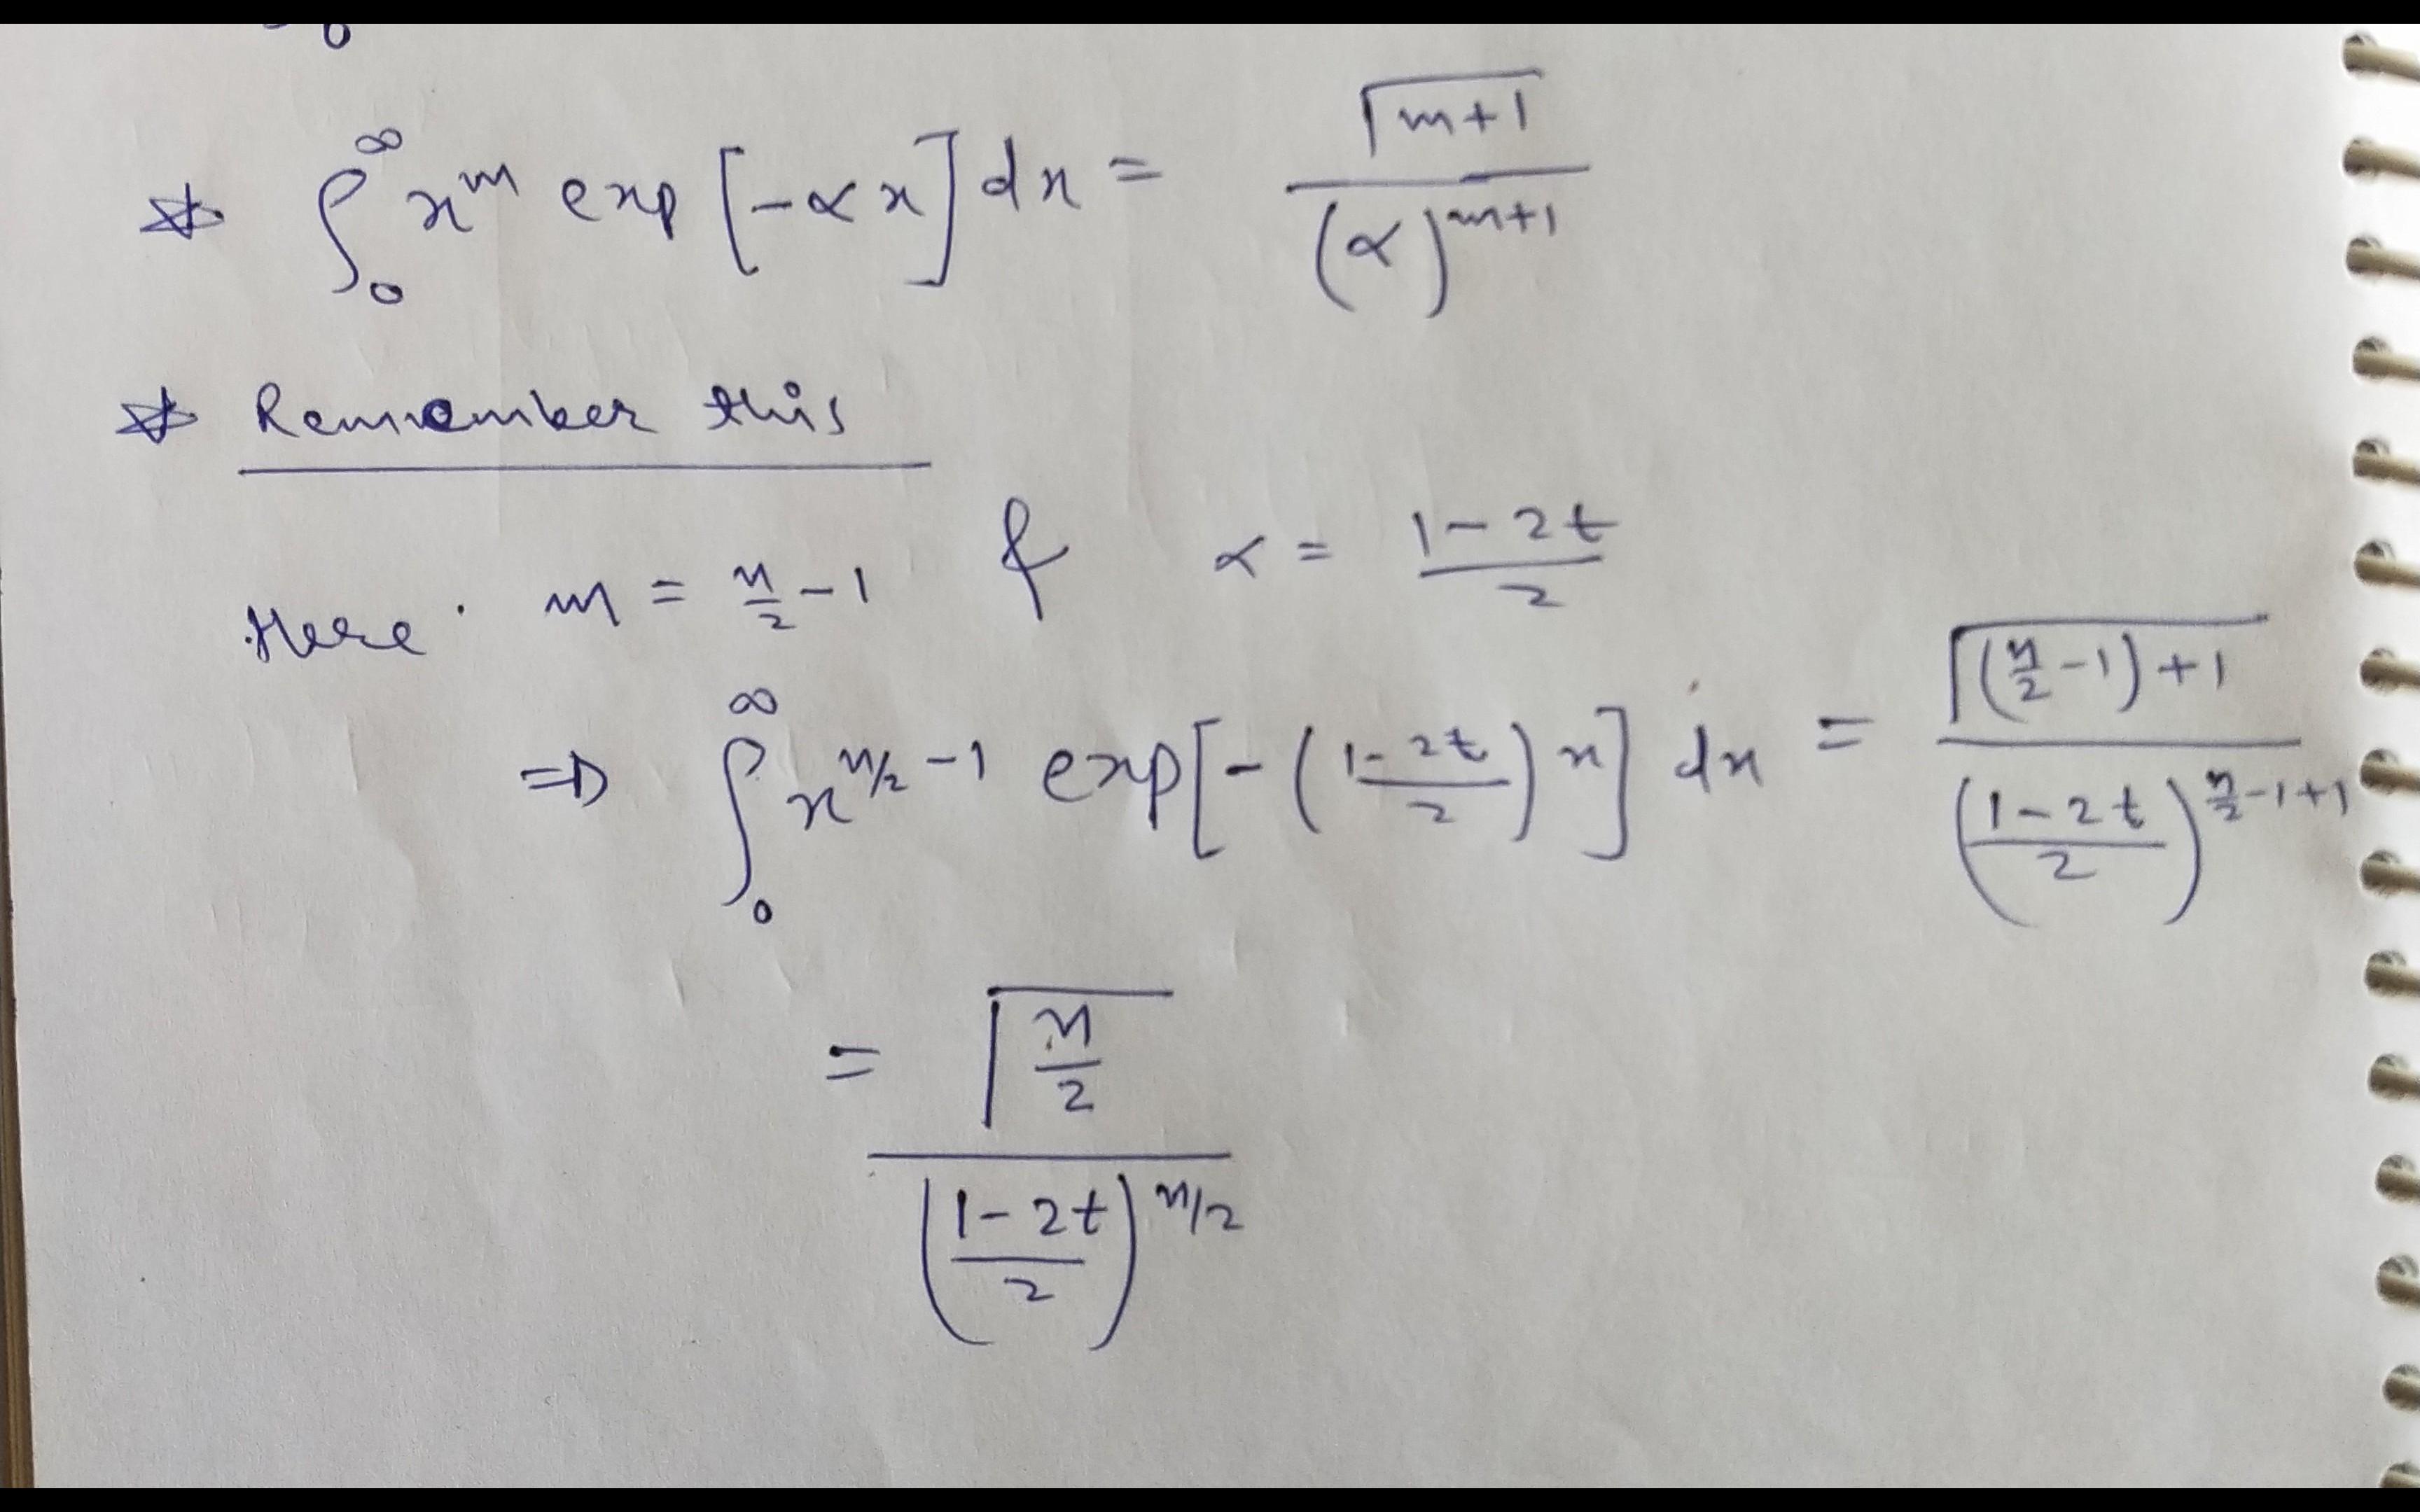 0
☆ ∫₀^∞ x^m exp[-αx] dx = Γ(m+1) / (α)^(m+1)
☆ Remember this
Here m = n/2 - 1 & α = (1-2t)/2
⇒ ∫₀^∞ x^(n/2 - 1) exp[-((1-2t)/2)x] dx = Γ((n/2 - 1)+1) / ((1-2t)/2)^(n/2 - 1 + 1)
= Γ(n/2) / ((1-2t)/2)^(n/2)